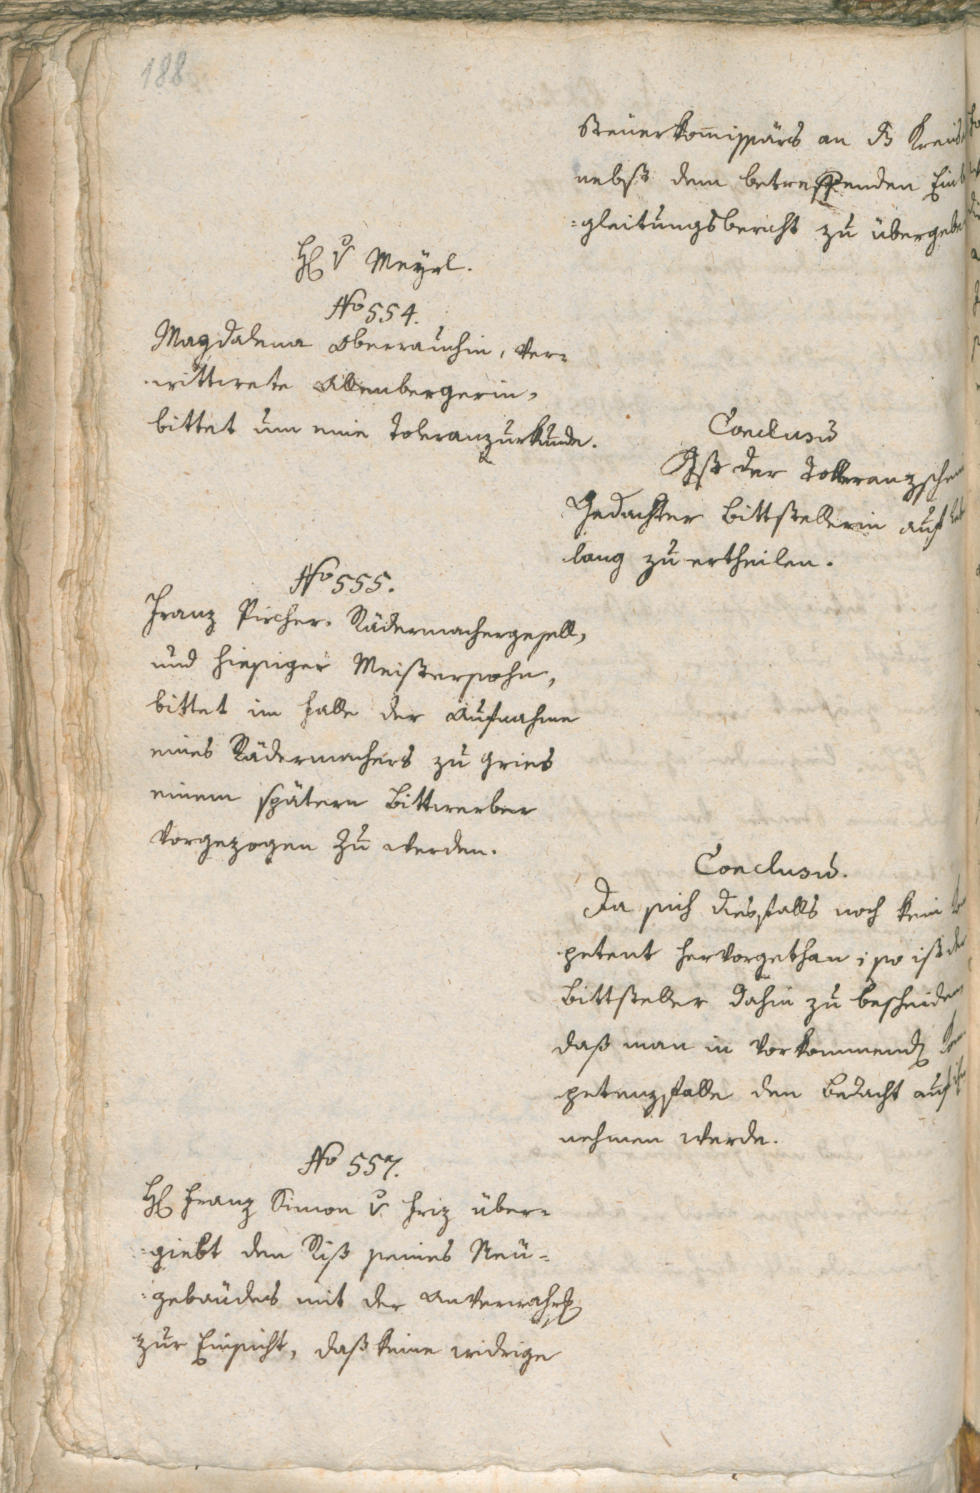 188
Steuerkom̅issärs an ds Kreis
nebst dem betreffenden Einb
=gleitungsbericht zu übergeb
H v Meyrl.
No 554.
Magdalena Oberrauchin, ver=
wittwete
bittet um eine Toleranzurkunde.
Conclusũ
Ist der Tolleranzschein
Gedachter Bittstellerin auf
lang zu ertheilen.
No 555.
Franz Pircher. Rädermachergesell,
und hiesiger Meistersohn,
bittet im Falle der Aufnahme
eines Rädermachers zu Gries
einem spätern Bittwerber
vorgezogen zu werden.
Conclusũ.
Da sich diesfalls noch kein
petent hervorgethan; so ist der
Bittsteller dahin zu bescheiden
daß man in vorkommend
petenzfalle den Bedacht auf ihn
nehmen werde.
No 557.
H Franz Simon v. Friz über=
=giebt den Riß seines Neü=
=gebäudes mit der Anverwahrg
zur Einsicht, daß keine widrige